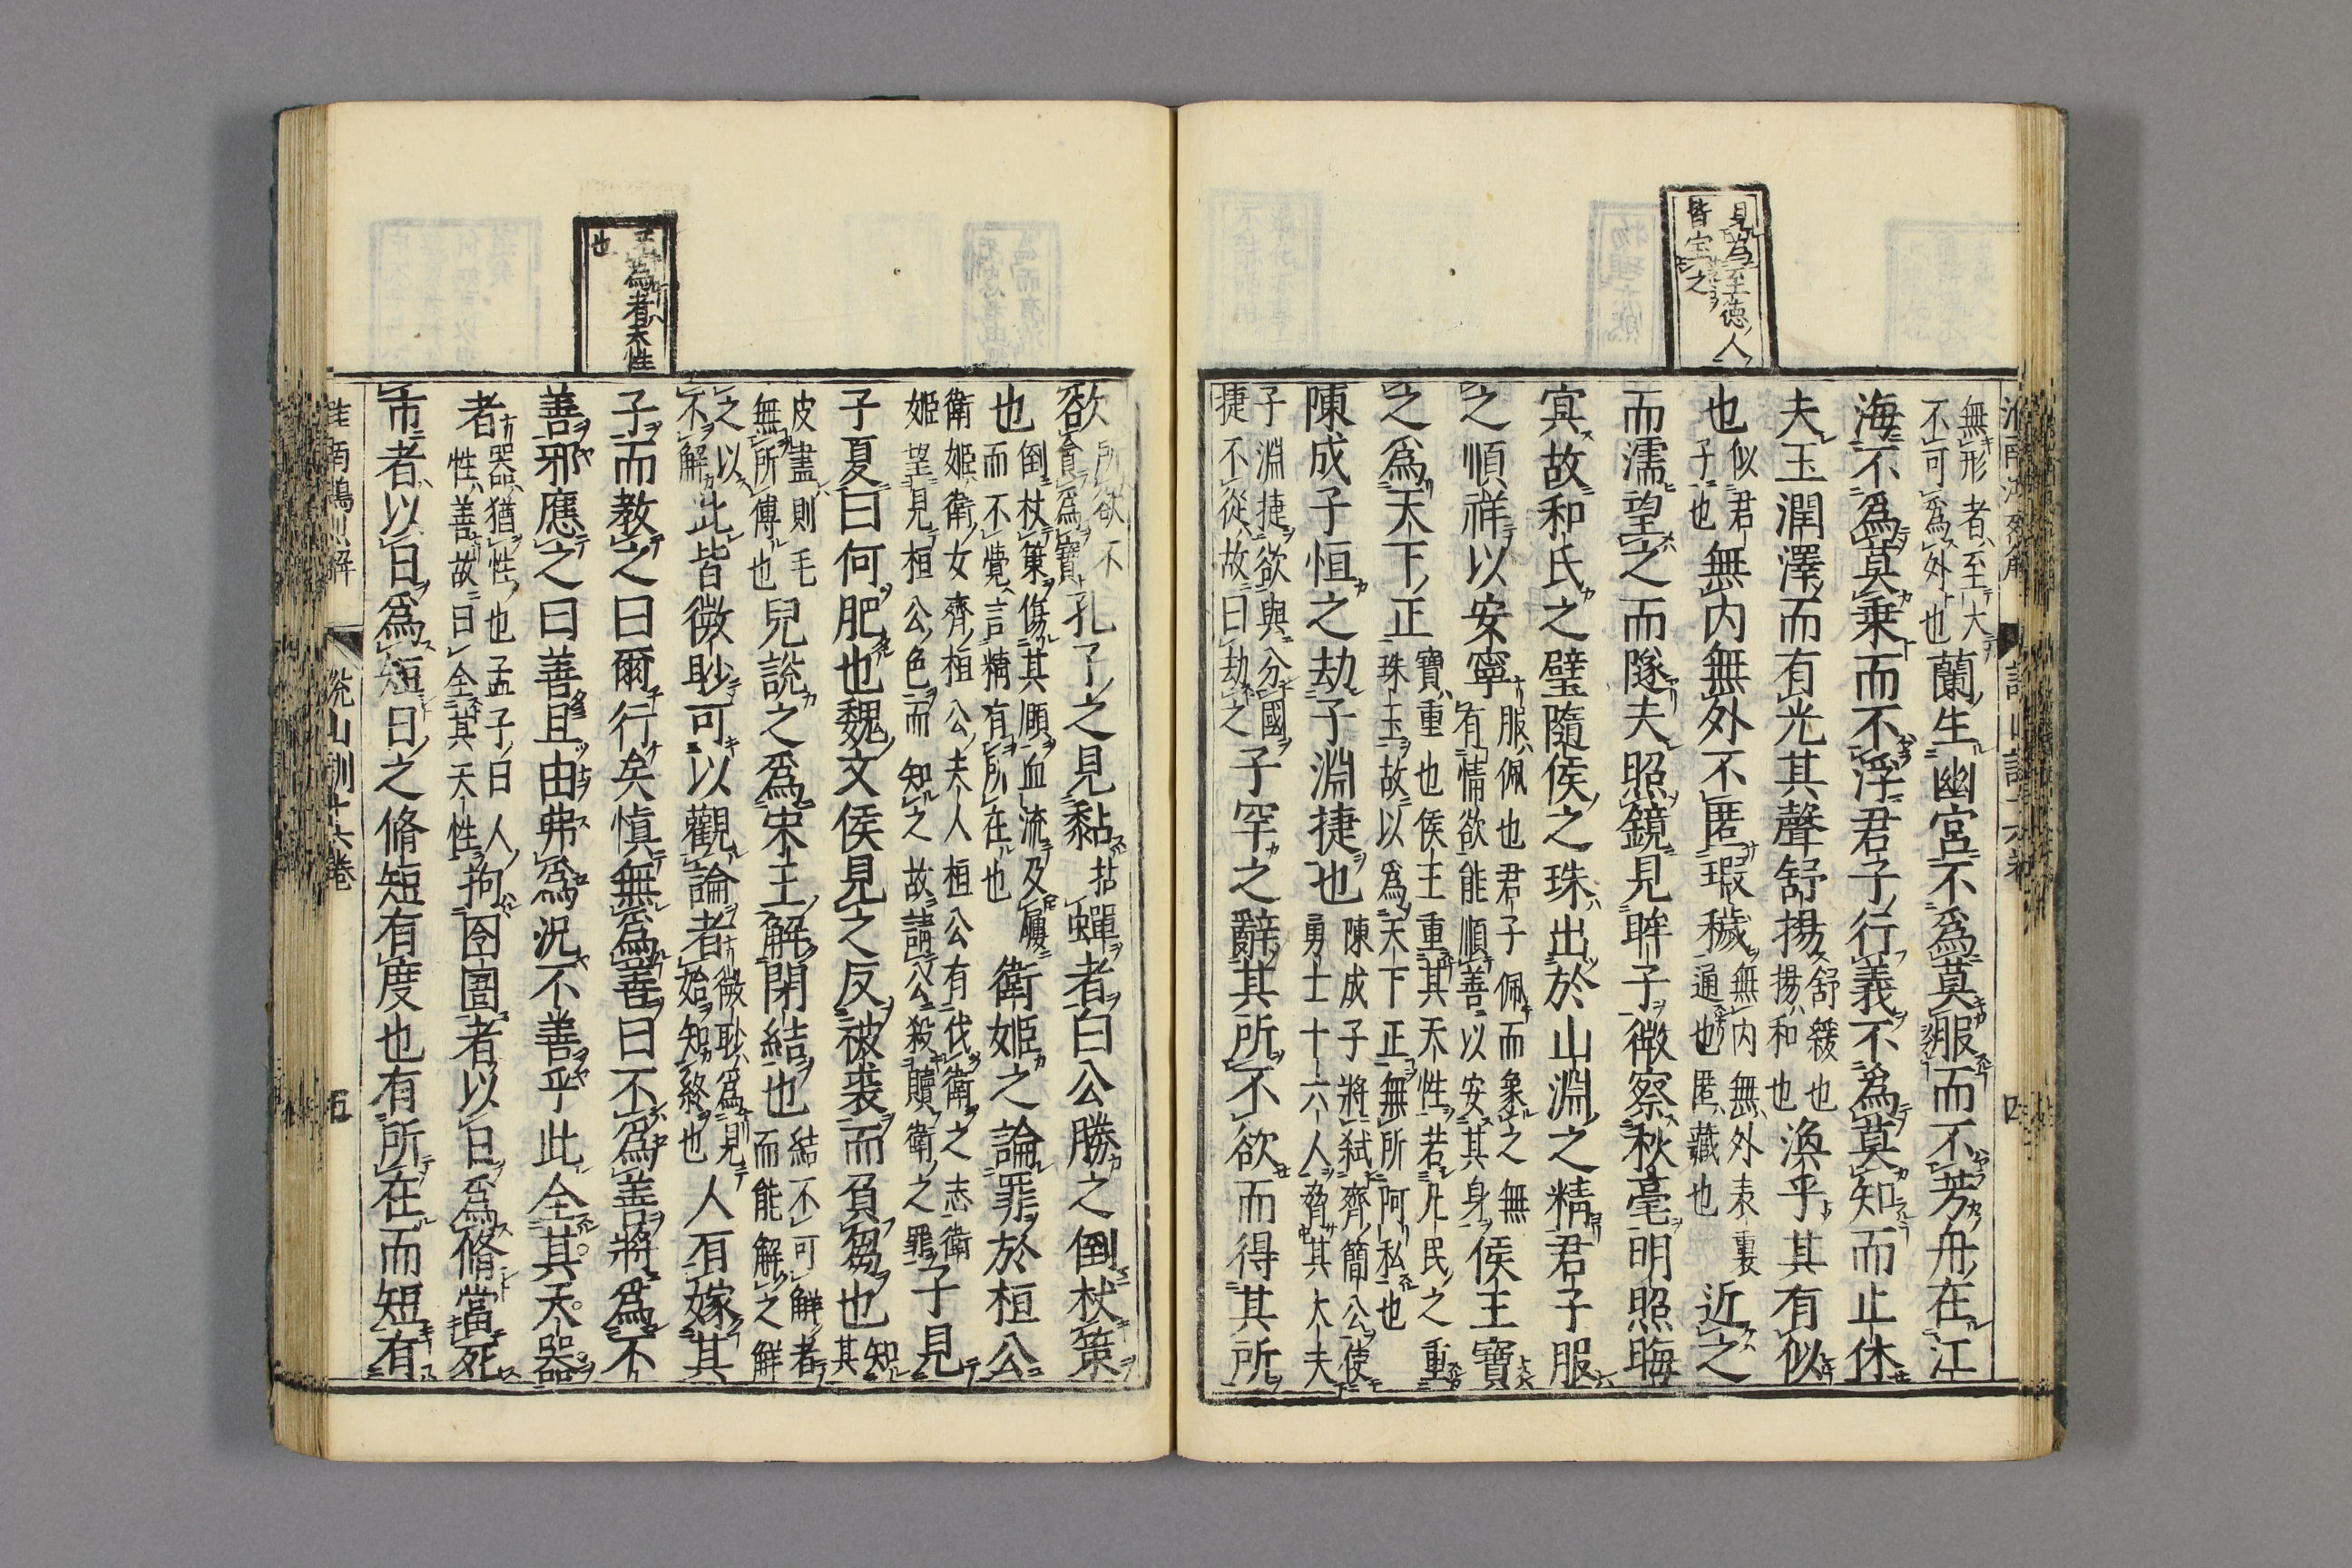 見為至徳人
皆宝之
無形者至大
不可爲外也
蘭生幽宮不爲莫服而不芳舟在江
海不爲莫乗而不浮君子行義不爲莫知而止休
夫玉潤澤而有光其聲舒揚
舒緩也
揚和也
渙乎其有似
也
似君
子也
無内無外不匿瑕穢
無内無外表裏
通也匿藏也
近之
而濡望之而隧夫照鏡見眸子微察秋毫明照晦
㝠故和氏之璧隨侯之珠出於山淵之精君子服
之順祥以安寧
服佩也君子佩而象之無
有情欲能順善以安其身
侯王寶
之爲天下正
寶重也侯王重其天性若凡民之重
珠玉故以爲天下正無所阿私也
陳成子恒之劫子淵捷也
陳成子將弑齊簡公使
勇士十六人脅其大夫
子淵捷欲與分國
捷不從故曰劫之
子罕之辭其所不欲而得其所
四
為者天性
也
欲
所欲不
貪爲寶
孔子之見黏蟬者白公勝之倒杖策
也
倒杖策傷其頤血流及屨
而不覺言精有所在也
衛姬之論罪於桓公
衛姬衛女齊桓公夫人桓公有伐衛之志衛
姬望見桓公色而知之故請公殺贖衛之罪
子見
子夏曰何肥也魏文侯見之反被裘而負芻也
知
其
皮盡則毛
無所傅也
兒說之爲宋王解閉結也
結不可解者
而能解之解
之以
不解
此皆微眇可以觀論者
微眇爲見
始知終也
人有嫁其
子而教之曰爾行矣慎無爲善曰不爲善將爲不
善邪應之曰善且由弗爲況不善乎此全其天器
者
器猶性也孟子曰人
性善故曰全其天性
拘囹圄者以日爲脩當死
市者以日爲短日之脩短有度也有所在而短有
說山訓十六巻
五